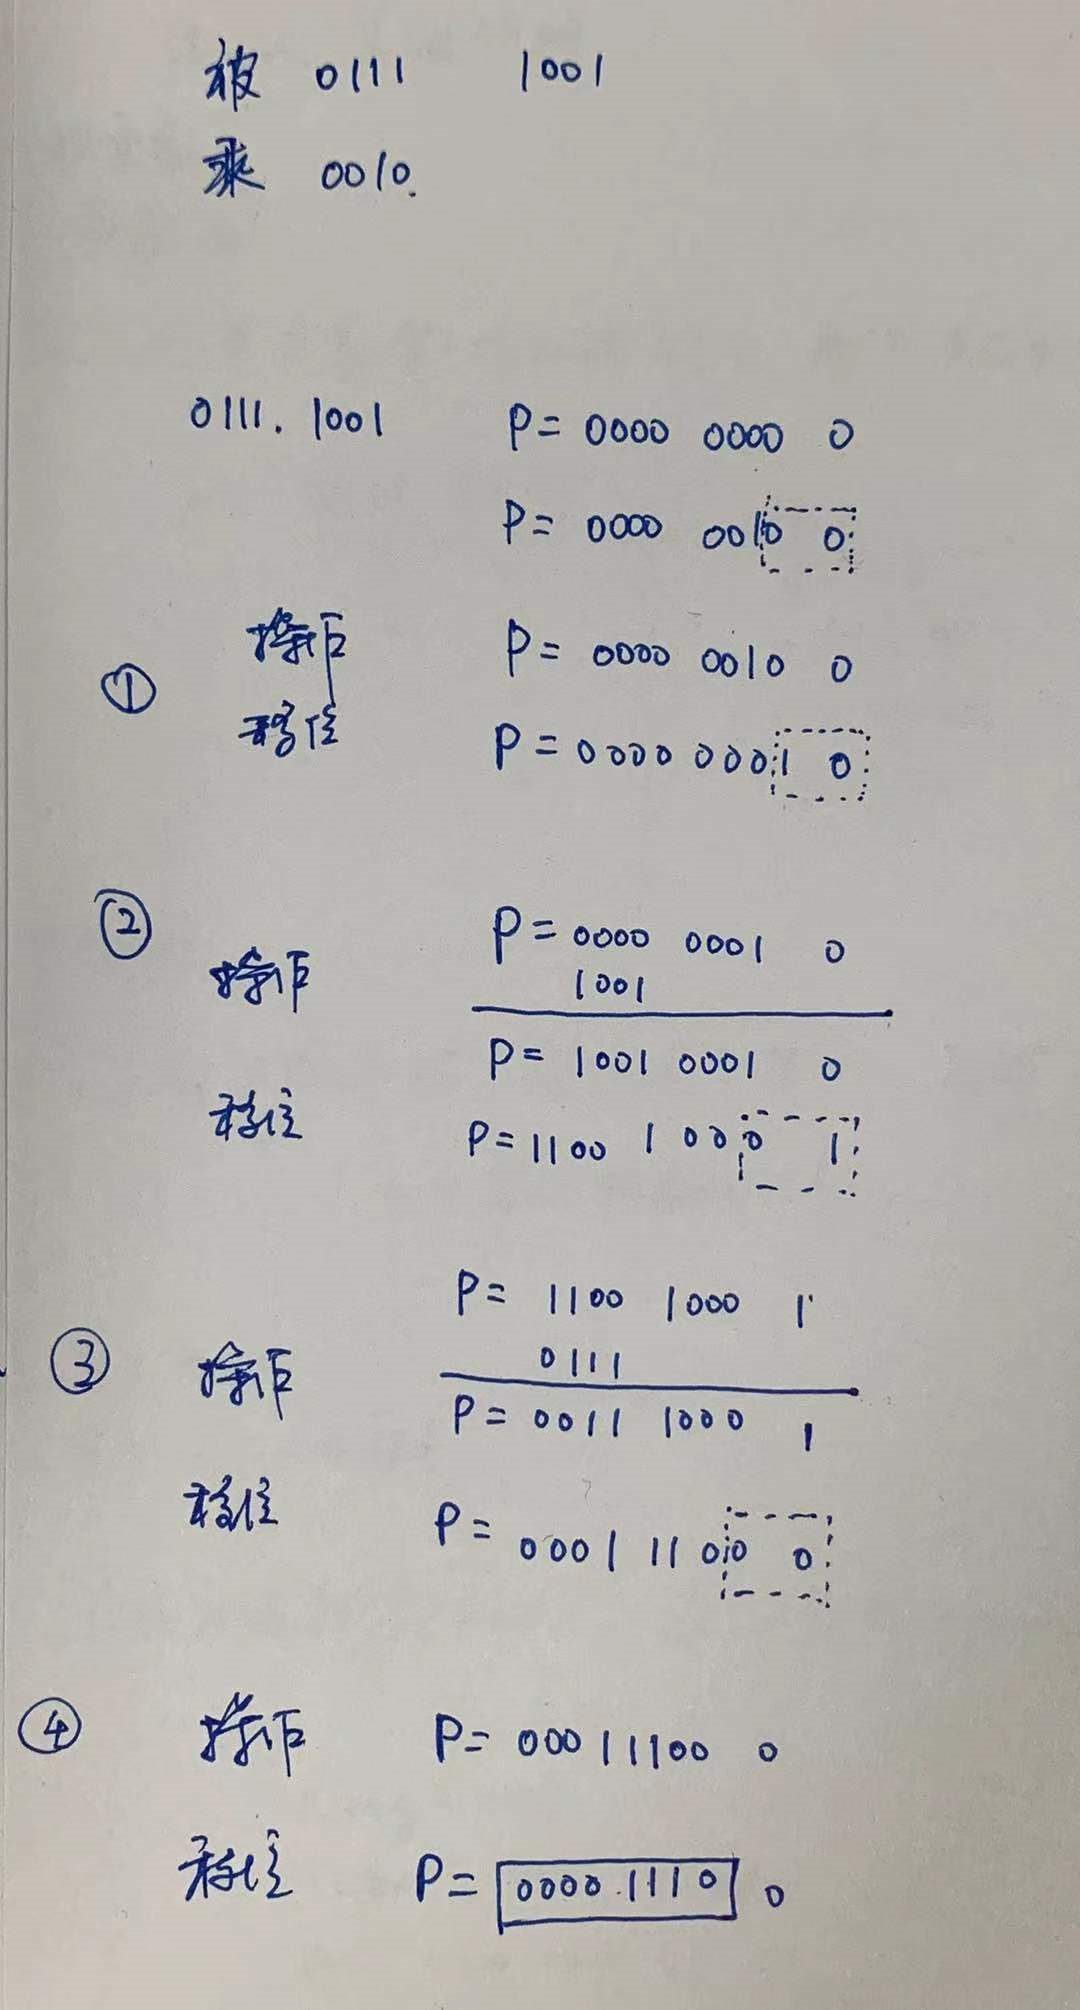 被 0111 1001
乘 0010.
0111. 1001 P= 0000 0000 0
P= 0000 0010 0
操作 P= 0000 0010 0
①
移位 P= 0000 0001 0
② P= 0000 0001 0
操作 1001
P= 1001 0001 0
移位 P= 1100 1000 1
P= 1100 1000 1
③ 操作 0111
P= 0011 1000 1
移位 P= 0001 1100 0
④ 操作 P= 00011100 0
移位 P= 0000 1110 0